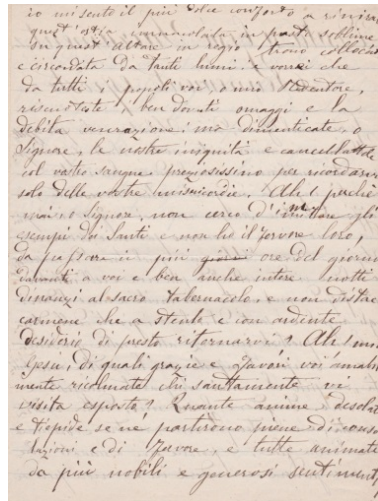 io mi sento il più dolce conforto a rimirar
quest'ostia immacolata in parte sublime
su quest'altare in regio trono collocata
e circondata da tanti lumi e vorrei che
da tutti i popoli voi o mio Redentore,
riscuoteste i ben dovuti omaggi e la
debita venerazione: ma dimenticate, o
Signore, le nostre iniquità e cancellatele
col vostro sangue preziosissimo per ricordarvi
solo delle vostre misericordie. Ah! perchè
mai, o Signore, non cerco d'imitare gli
esempi dei Santi e non ho il fervore loro,
da passare i più ore del giorno
davanti a voi e ben anche intere notti
dinanzi al sacro tabernacolo, e non distac
carmene che a stento e con ardente
desiderio di presto ritornarvi? Ah! mio
Gesù, di quali grazie e favori voi amabil
mente ricolmate chi santamente vi
visita esposto! Quante anime desolate
e tiepide se ne partirono piene di conso
lazioni e di favore, e tutte animate
da più nobili e generosi sentimenti,